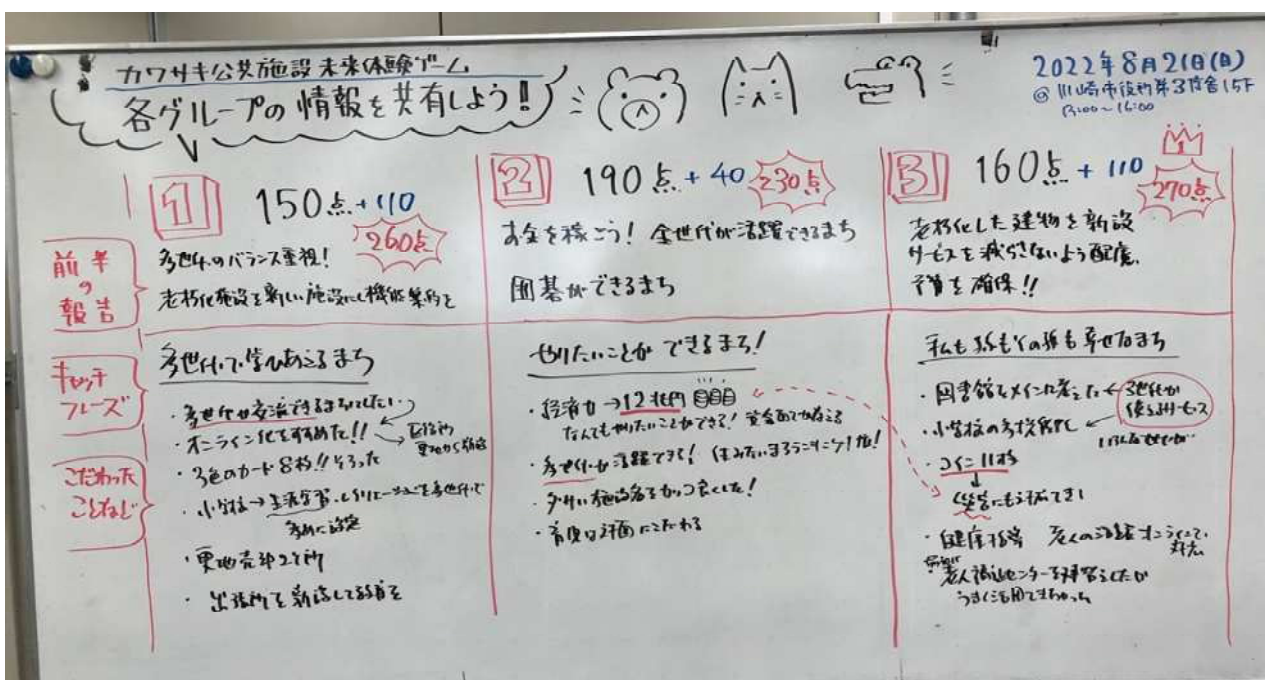 カワサキ公共施設 未来体験ゲーム
各グループの情報を共有しよう!
2022年8月21日(日)
@川崎市役所第3庁舎15F
13:00~16:00
前半の報告
キャッチフレーズ
こだわったことなど
1 150点+110
260点
多世代のバランス重視!
老朽化施設を新しい施設にし機能集約を
多世代で学びあえるまち
・多世代が交流できるまちにしたい
・オンライン化をすすめた!!
・3色のカード8枚!!そろった
・小学校→生涯学習、レクリエーションを多世代で
多めに設定
・更地売却2ヶ所
・出張所を新設して
2 190点+40 230点
お金を稼ごう! 全世代が活躍できるまち
囲碁ができるまち
やりたいことができるまち!
・経済力→12兆円
なんでもやりたいことができる!
・多世代が活躍できる! 住みたいまち
・ダサい施設名をかっこ良くした!
・計画にこだわる
3 160点+110
1
270点
老朽化した建物を新設
サービスを減らさないよう配慮、
予算を確保!!
私も孫もその孫も幸せなまち
・図書館をメインに考えた
3世代が
使えるサービス
・小学校の多機能化
・コイン11枚
災害にも対応でき
・健康指導 老人の活躍
老人福祉センターを
うまく活用できなかった